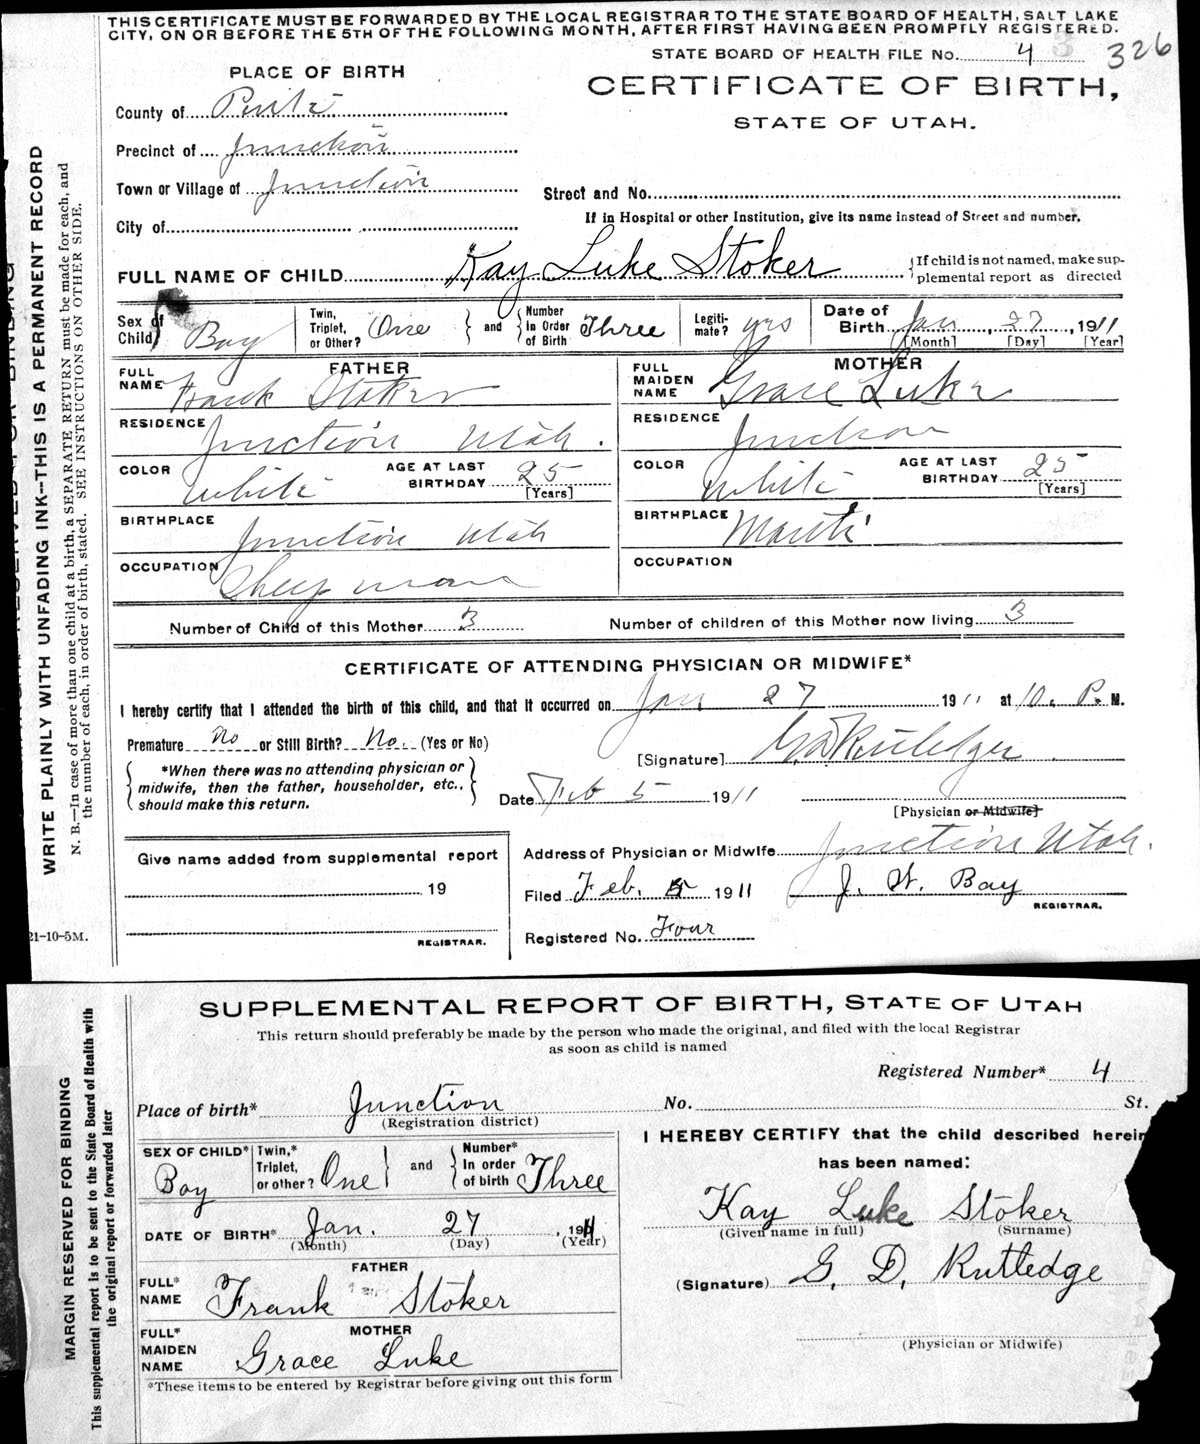 THIS CERTIFICATE MUST BE FORWARDED BY THE LOCAL REGISTRAR TO THE STATE BOARD OF HEALTH, SALT LAKE
CITY, ON OR BEFORE THE 5TH OF THE FOLLOWING MONTH, AFTER FIRST HAVING BEEN PROMPTLY REGISTERED.
STATE BOARD OF HEALTH FILE No. 4 3 326
PLACE OF BIRTH
CERTIFICATE OF BIRTH,
STATE OF UTAH.
County of Piute
Precinct of Junction
Town or Village of Junction
Street and No.
City of
If in Hospital or other Institution, give its name instead of Street and number.
FULL NAME OF CHILD Kay Luke Stoker
{If child is not named, make sup-
plemental report as directed
Sex of Child} Boy
Twin, Triplet, or Other? One } and { Number In Order of Birth Three
Legiti-mate? yes
Date of Birth Jan, 27, 1911
[Month] [Day] [Year]
FATHER
FULL NAME Frank Stoker
MOTHER
FULL MAIDEN NAME Grace Luke
RESIDENCE Junction Utah.
RESIDENCE Junction
COLOR White AGE AT LAST BIRTHDAY 25 [Years]
COLOR White AGE AT LAST BIRTHDAY 25 [Years]
BIRTHPLACE Junction Utah
BIRTHPLACE Manti
OCCUPATION Sheep man
OCCUPATION
Number of Child of this Mother 3 Number of children of this Mother now living 3
CERTIFICATE OF ATTENDING PHYSICIAN OR MIDWIFE*
I hereby certify that I attended the birth of this child, and that it occurred on Jan 27 1911 at 10. P. M.
Premature No or Still Birth? No. (Yes or No)
[Signature] G. D. Rutledge
{ *When there was no attending physician or
midwife, then the father, householder, etc.,
should make this return. }
Date Feb 5 1911
[Physician or Midwife]
Give name added from supplemental report
19
REGISTRAR.
Address of Physician or Midwife Junction Utah.
Filed Feb. 5 1911 J. W. Bay
REGISTRAR.
Registered No. Four
WRITE PLAINLY WITH UNFADING INK--THIS IS A PERMANENT RECORD
N. B.—In case of more than one child at a birth, a SEPARATE RETURN must be made for each, and
the number of each, in order of birth, stated. SEE INSTRUCTIONS ON OTHER SIDE.
21-10-5M.
SUPPLEMENTAL REPORT OF BIRTH, STATE OF UTAH
This return should preferably be made by the person who made the original, and filed with the local Registrar
as soon as child is named
Registered Number* 4
Place of birth* Junction No. St.
(Registration district)
SEX OF CHILD* Boy
Twin,* Triplet, or other? One } and { Number* In order of birth Three
DATE OF BIRTH* Jan. 27, 1911
(Month) (Day) (Year)
FATHER
FULL* NAME Frank Stoker
MOTHER
FULL* MAIDEN NAME Grace Luke
*These items to be entered by Registrar before giving out this form
I HEREBY CERTIFY that the child described herein
has been named:
Kay Luke Stoker
(Given name in full) (Surname)
(Signature) G. D. Rutledge
(Physician or Midwife)
MARGIN RESERVED FOR BINDING
This supplemental report is to be sent to the State Board of Health with
the original report or forwarded later